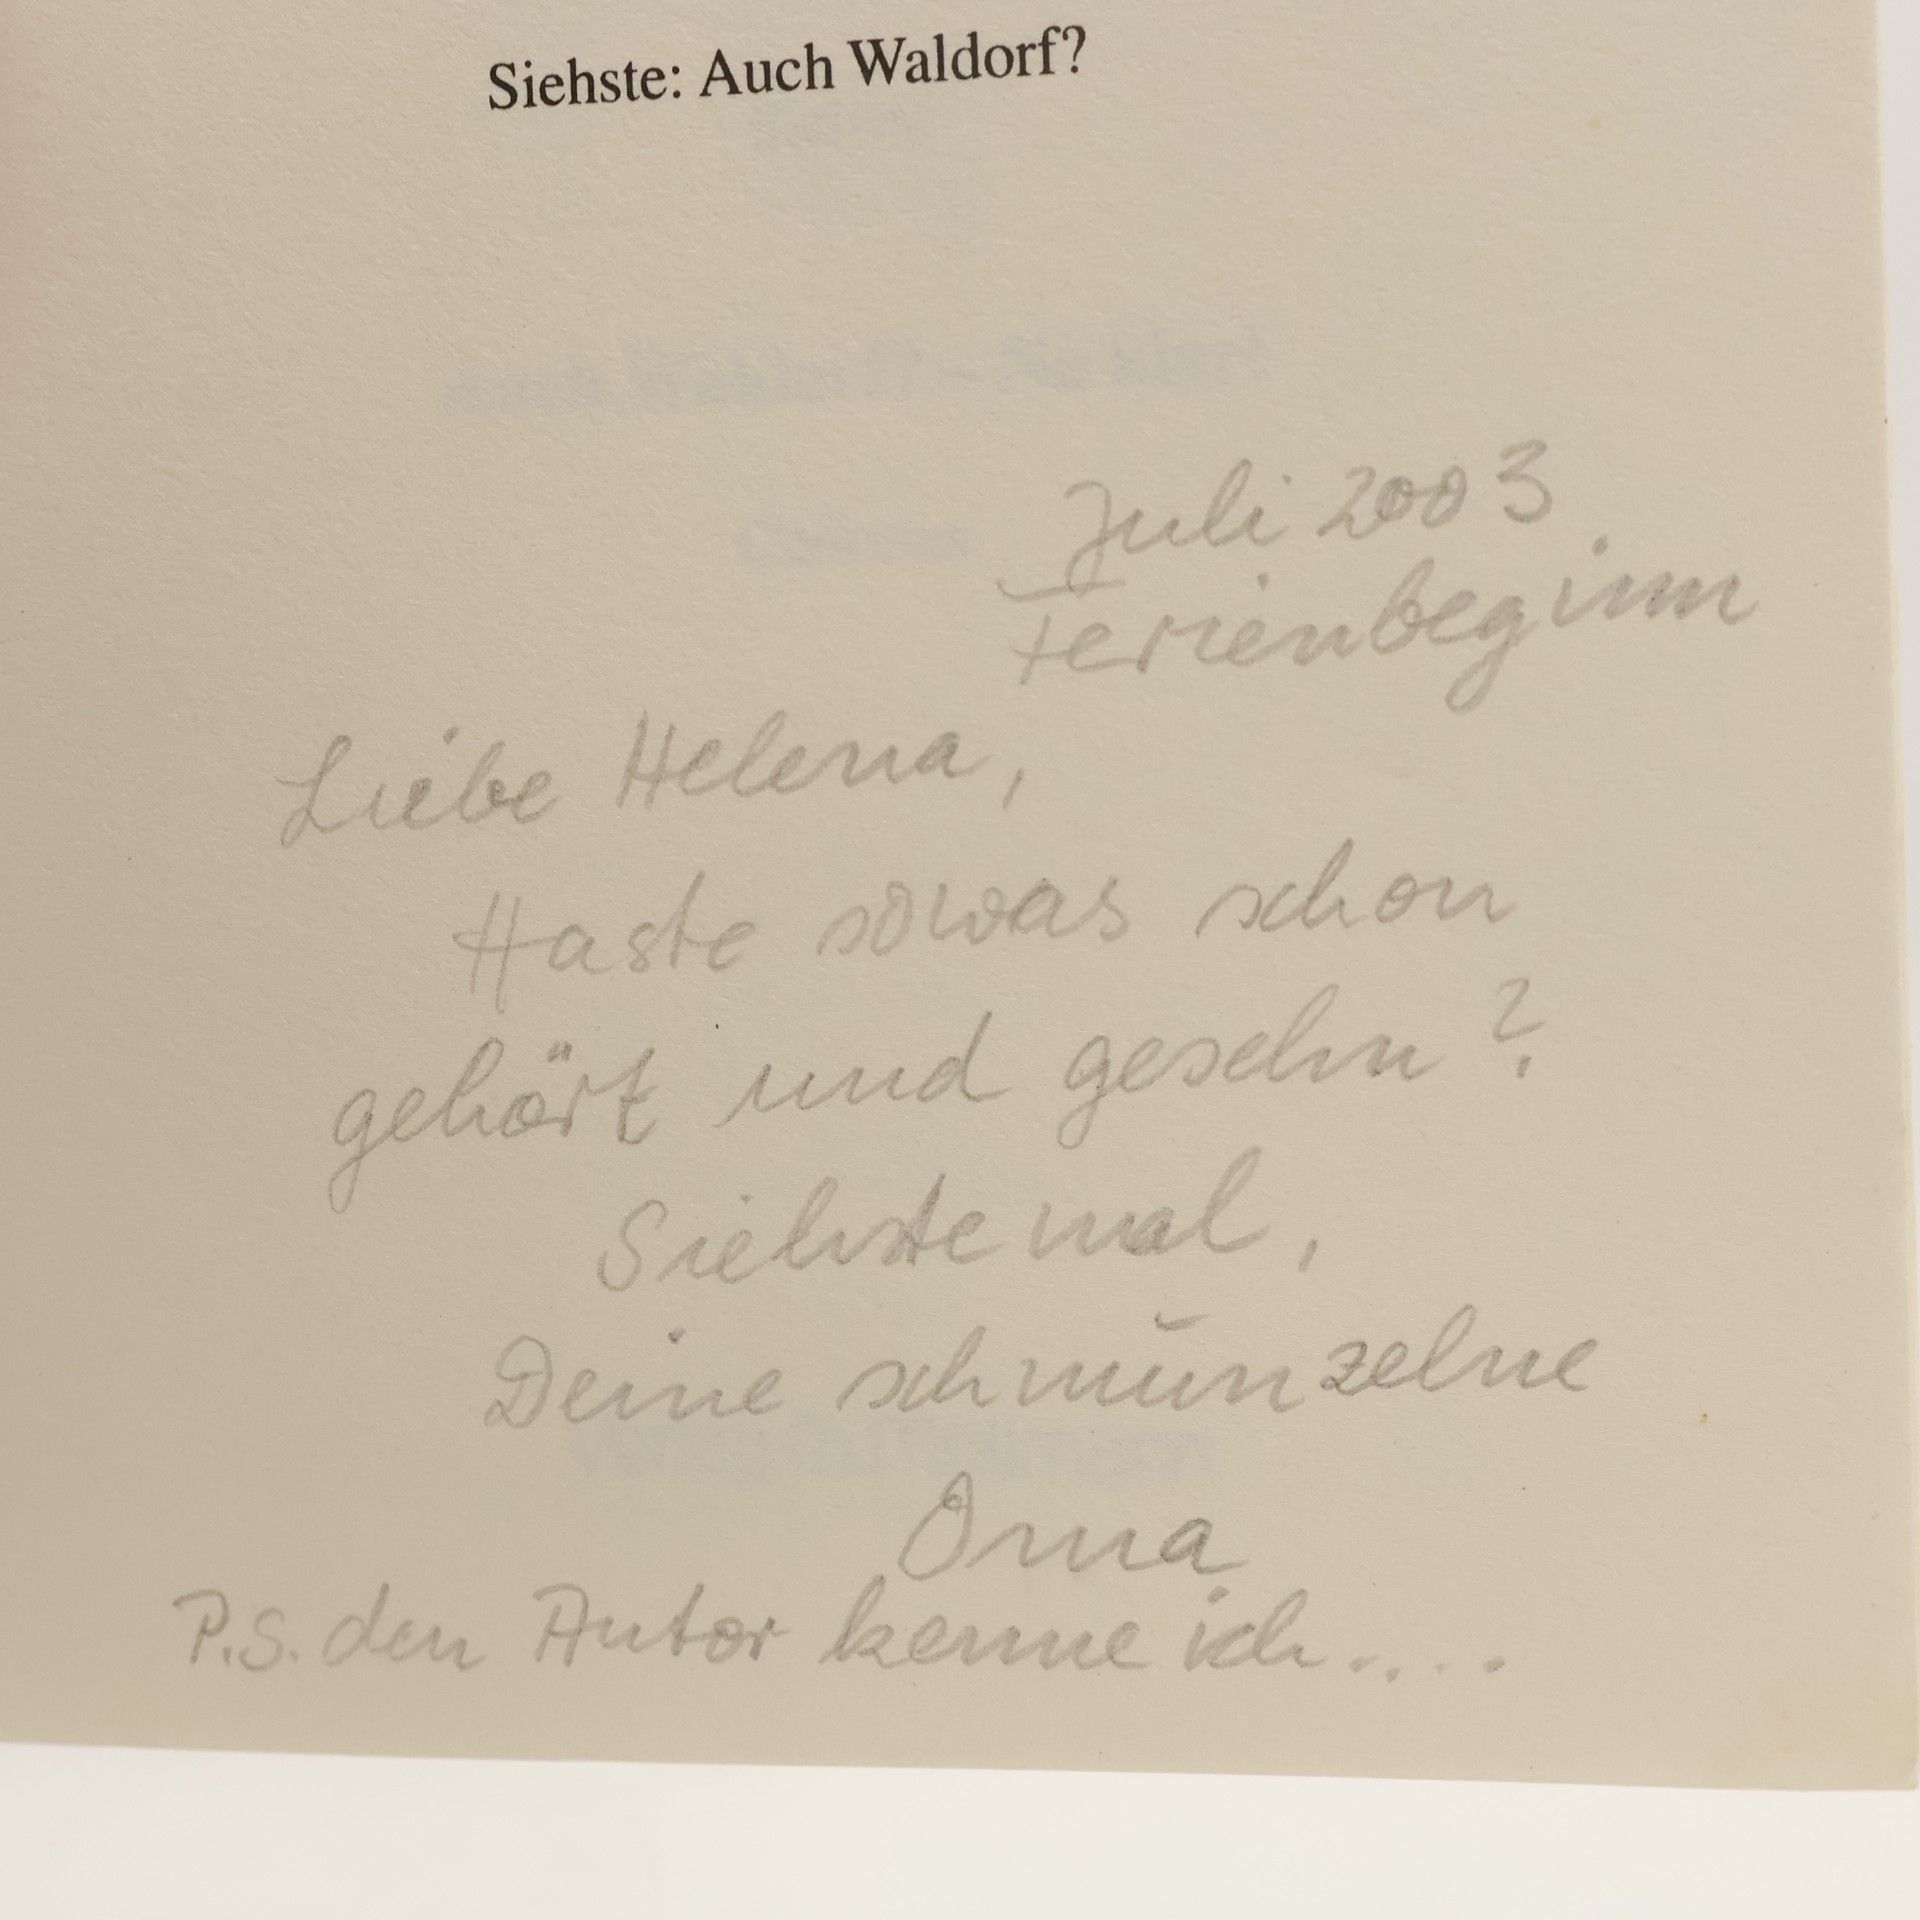 Siehste: Auch Waldorf?
Juli 2003
Ferienbeginn
Liebe Helena,
Haste sowas schon
gehört und gesehn?
Siehste mal,
Deine schmunzelne
Oma
P.S. den Autor kenne ich....